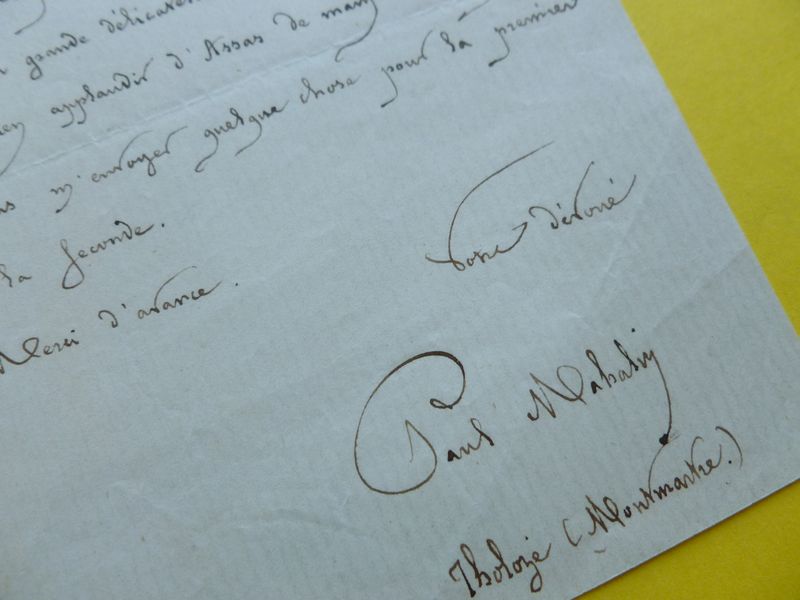 grande délicatesse
applaudir d'Assas de
m'envoyer quelque chose pour la première
la seconde.
Merci d'avance.
Votre dévoué
Paul Mahalin
Tholozé (Montmartre.)